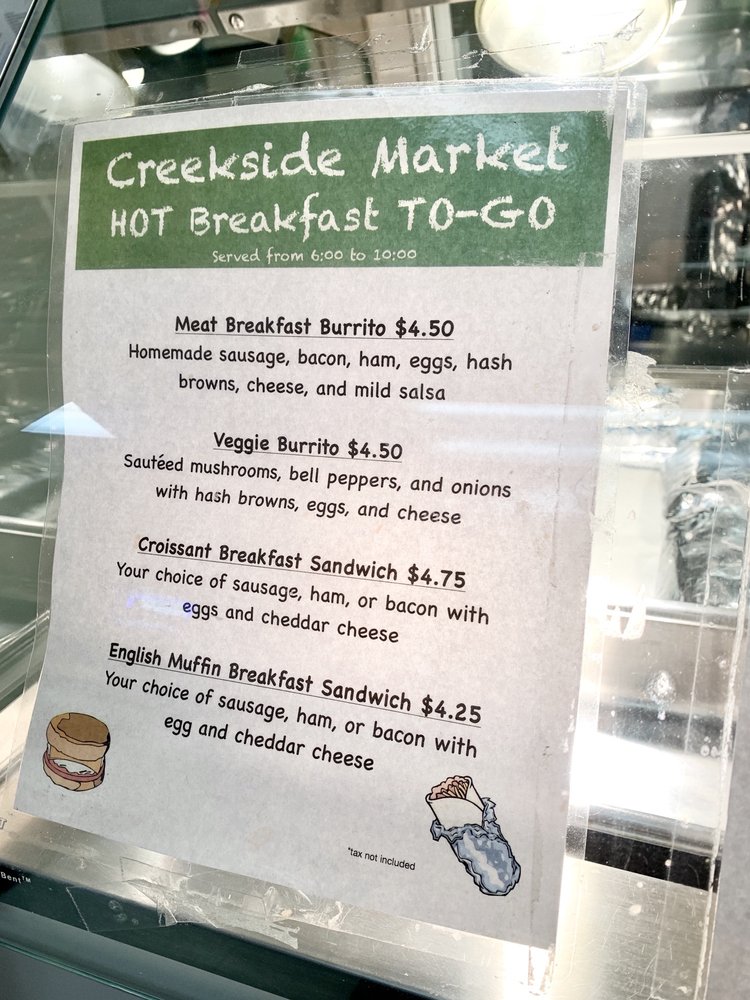 Creekside Market
HOT Breakfast TO-GO
Served from 6:00 to 10:00
Meat Breakfast Burrito $4.50
Homemade sausage, bacon, ham, eggs, hash
browns, cheese, and mild salsa
Veggie Burrito $4.50
Sautéed mushrooms, bell peppers, and onions
with hash browns, eggs, and cheese
Croissant Breakfast Sandwich $4.75
Your choice of sausage, ham, or bacon with
eggs and cheddar cheese
English Muffin Breakfast Sandwich $4.25
Your choice of sausage, ham, or bacon with
egg and cheddar cheese
*tax not included
Bent™